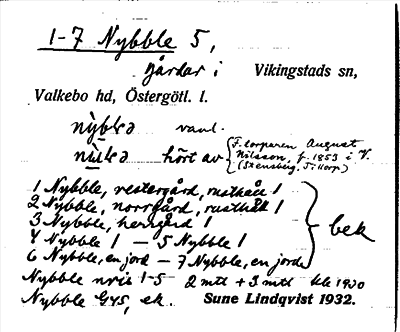 1-7 Nybble 5,
gårdar i Vikingstads sn,
Valkebo hd, Östergötl. l.
vanl.
hört av { F. torparen August
Nilsson, f. 1853 i V.
1 Nybble, västergård, rusthåll 1
2 Nybble, norrgård, rusthåll 1
3 Nybble, herrgård 1
4 Nybble 1 — 5 Nybble 1 } bek
6 Nybble, en jord — 7 Nybble, en jord
Nybble nris 1-5 2 mtl + 3 mtl
Nybble G45, ek. Sune Lindqvist 1932.